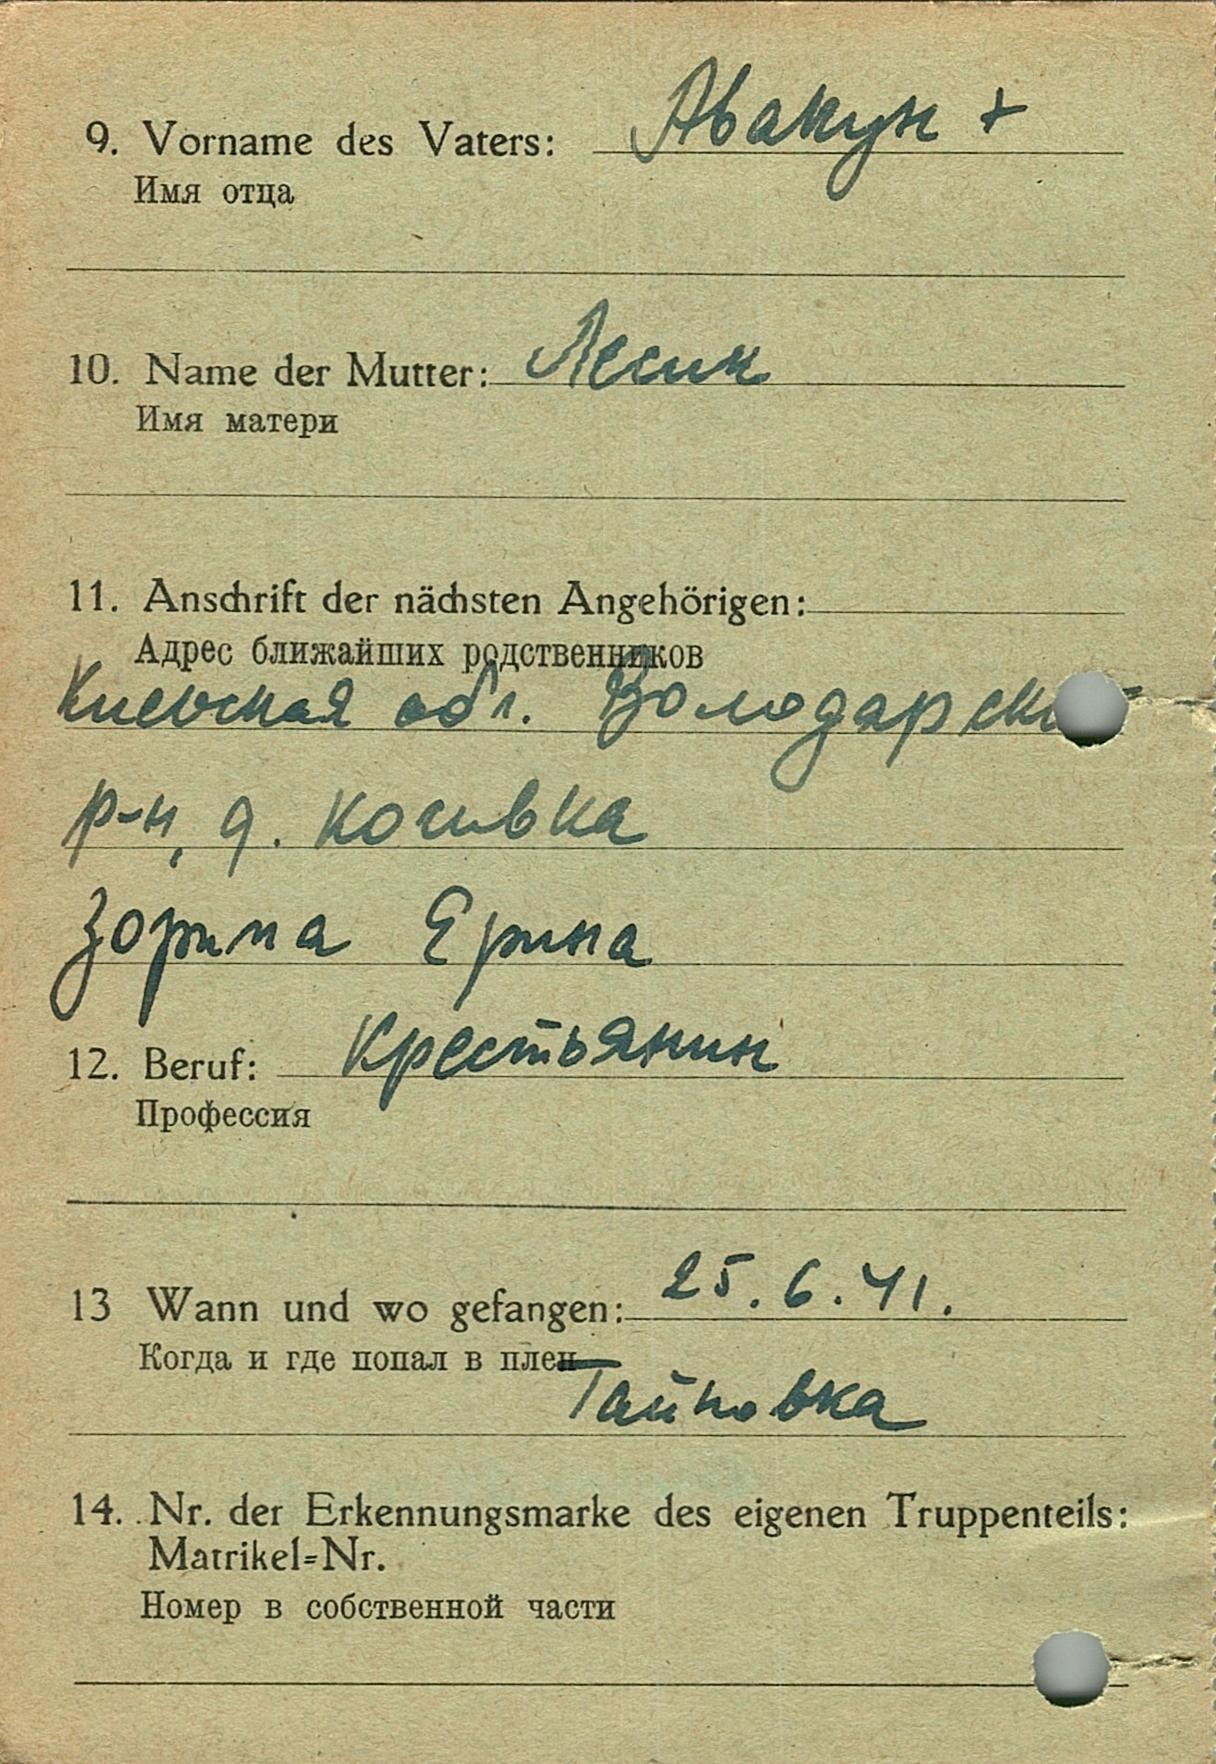 9. Vorname des Vaters: Авакун +
Имя отца
10. Name der Mutter: Лесик
Имя матери
11. Anschrift der nächsten Angehörigen:
Адрес ближайших родственников
Киевская обл. Володарск
р-н, д. Косивка
Зорина Ерина
12. Beruf: Крестьянин
Профессия
13 Wann und wo gefangen: 25.6.41.
Когда и где попал в плен
Гайновка
14. Nr. der Erkennungsmarke des eigenen Truppenteils:
Matrikel=Nr.
Номер в собственной части